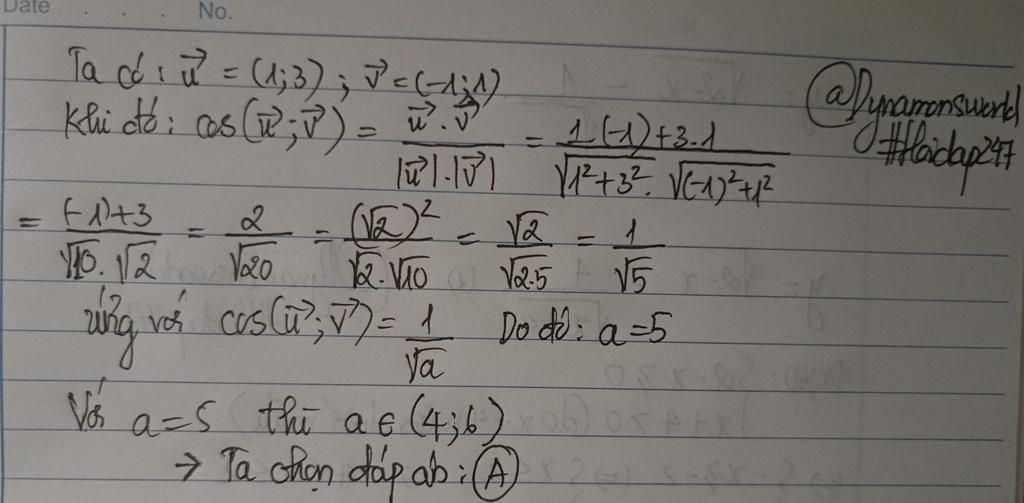 Date . . . No.
Ta có: $\vec{u} = (1;3)$ ; $\vec{v} = (-1;1)$
Khi đó: $\cos(\vec{u};\vec{v}) = \frac{\vec{u}.\vec{v}}{|\vec{u}|.|\vec{v}|} = \frac{1.(-1)+3.1}{\sqrt{1^2+3^2}.\sqrt{(-1)^2+1^2}}$
@Dynamonsworld
#Hoidap247
$= \frac{(-1)+3}{\sqrt{10}.\sqrt{2}} = \frac{2}{\sqrt{20}} = \frac{(\sqrt{2})^2}{\sqrt{2}.\sqrt{10}} = \frac{\sqrt{2}}{\sqrt{2.5}} = \frac{1}{\sqrt{5}}$
ứng với $\cos(\vec{u};\vec{v}) = \frac{1}{\sqrt{a}}$ Do đó: a=5
Với a=5 thì a ∈ (4;6)
→ Ta chọn đáp án: A